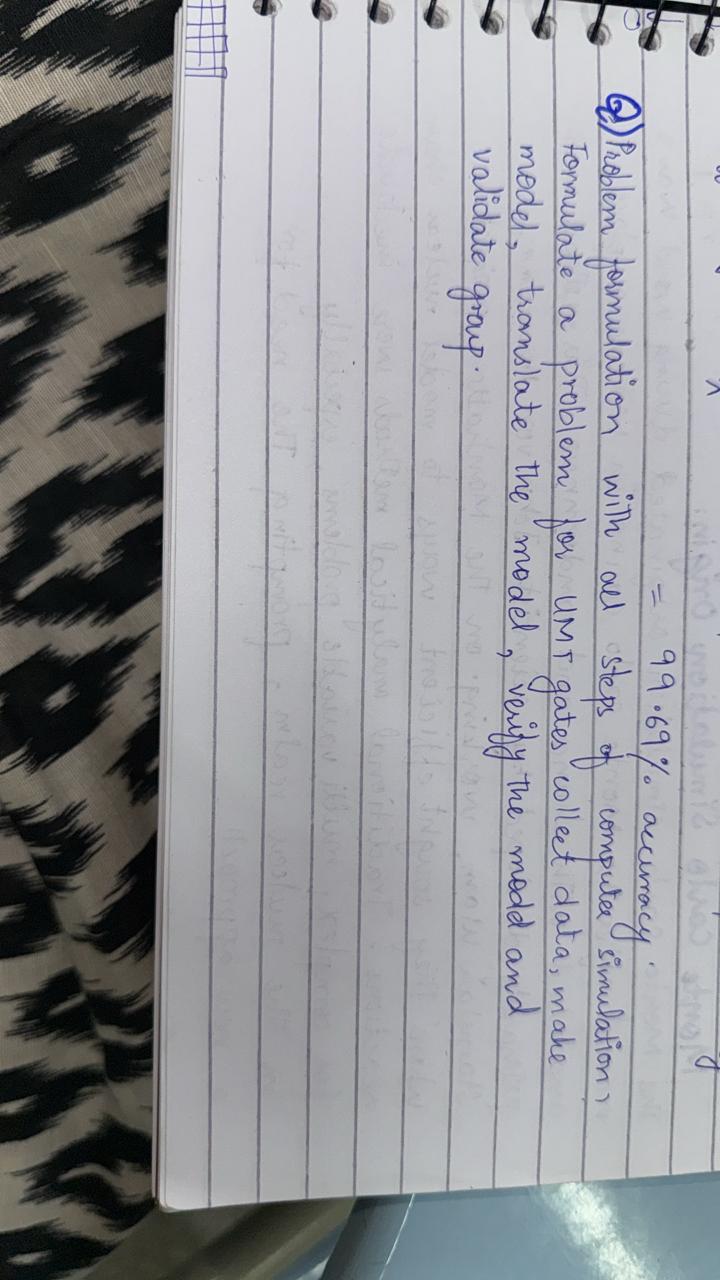 = 99.69% accuracy.
Q) Problem formulation with all steps of computer simulation,
Formulate a problem for UMT gates collect data, make
model, translate the model, verify the model and
validate group.